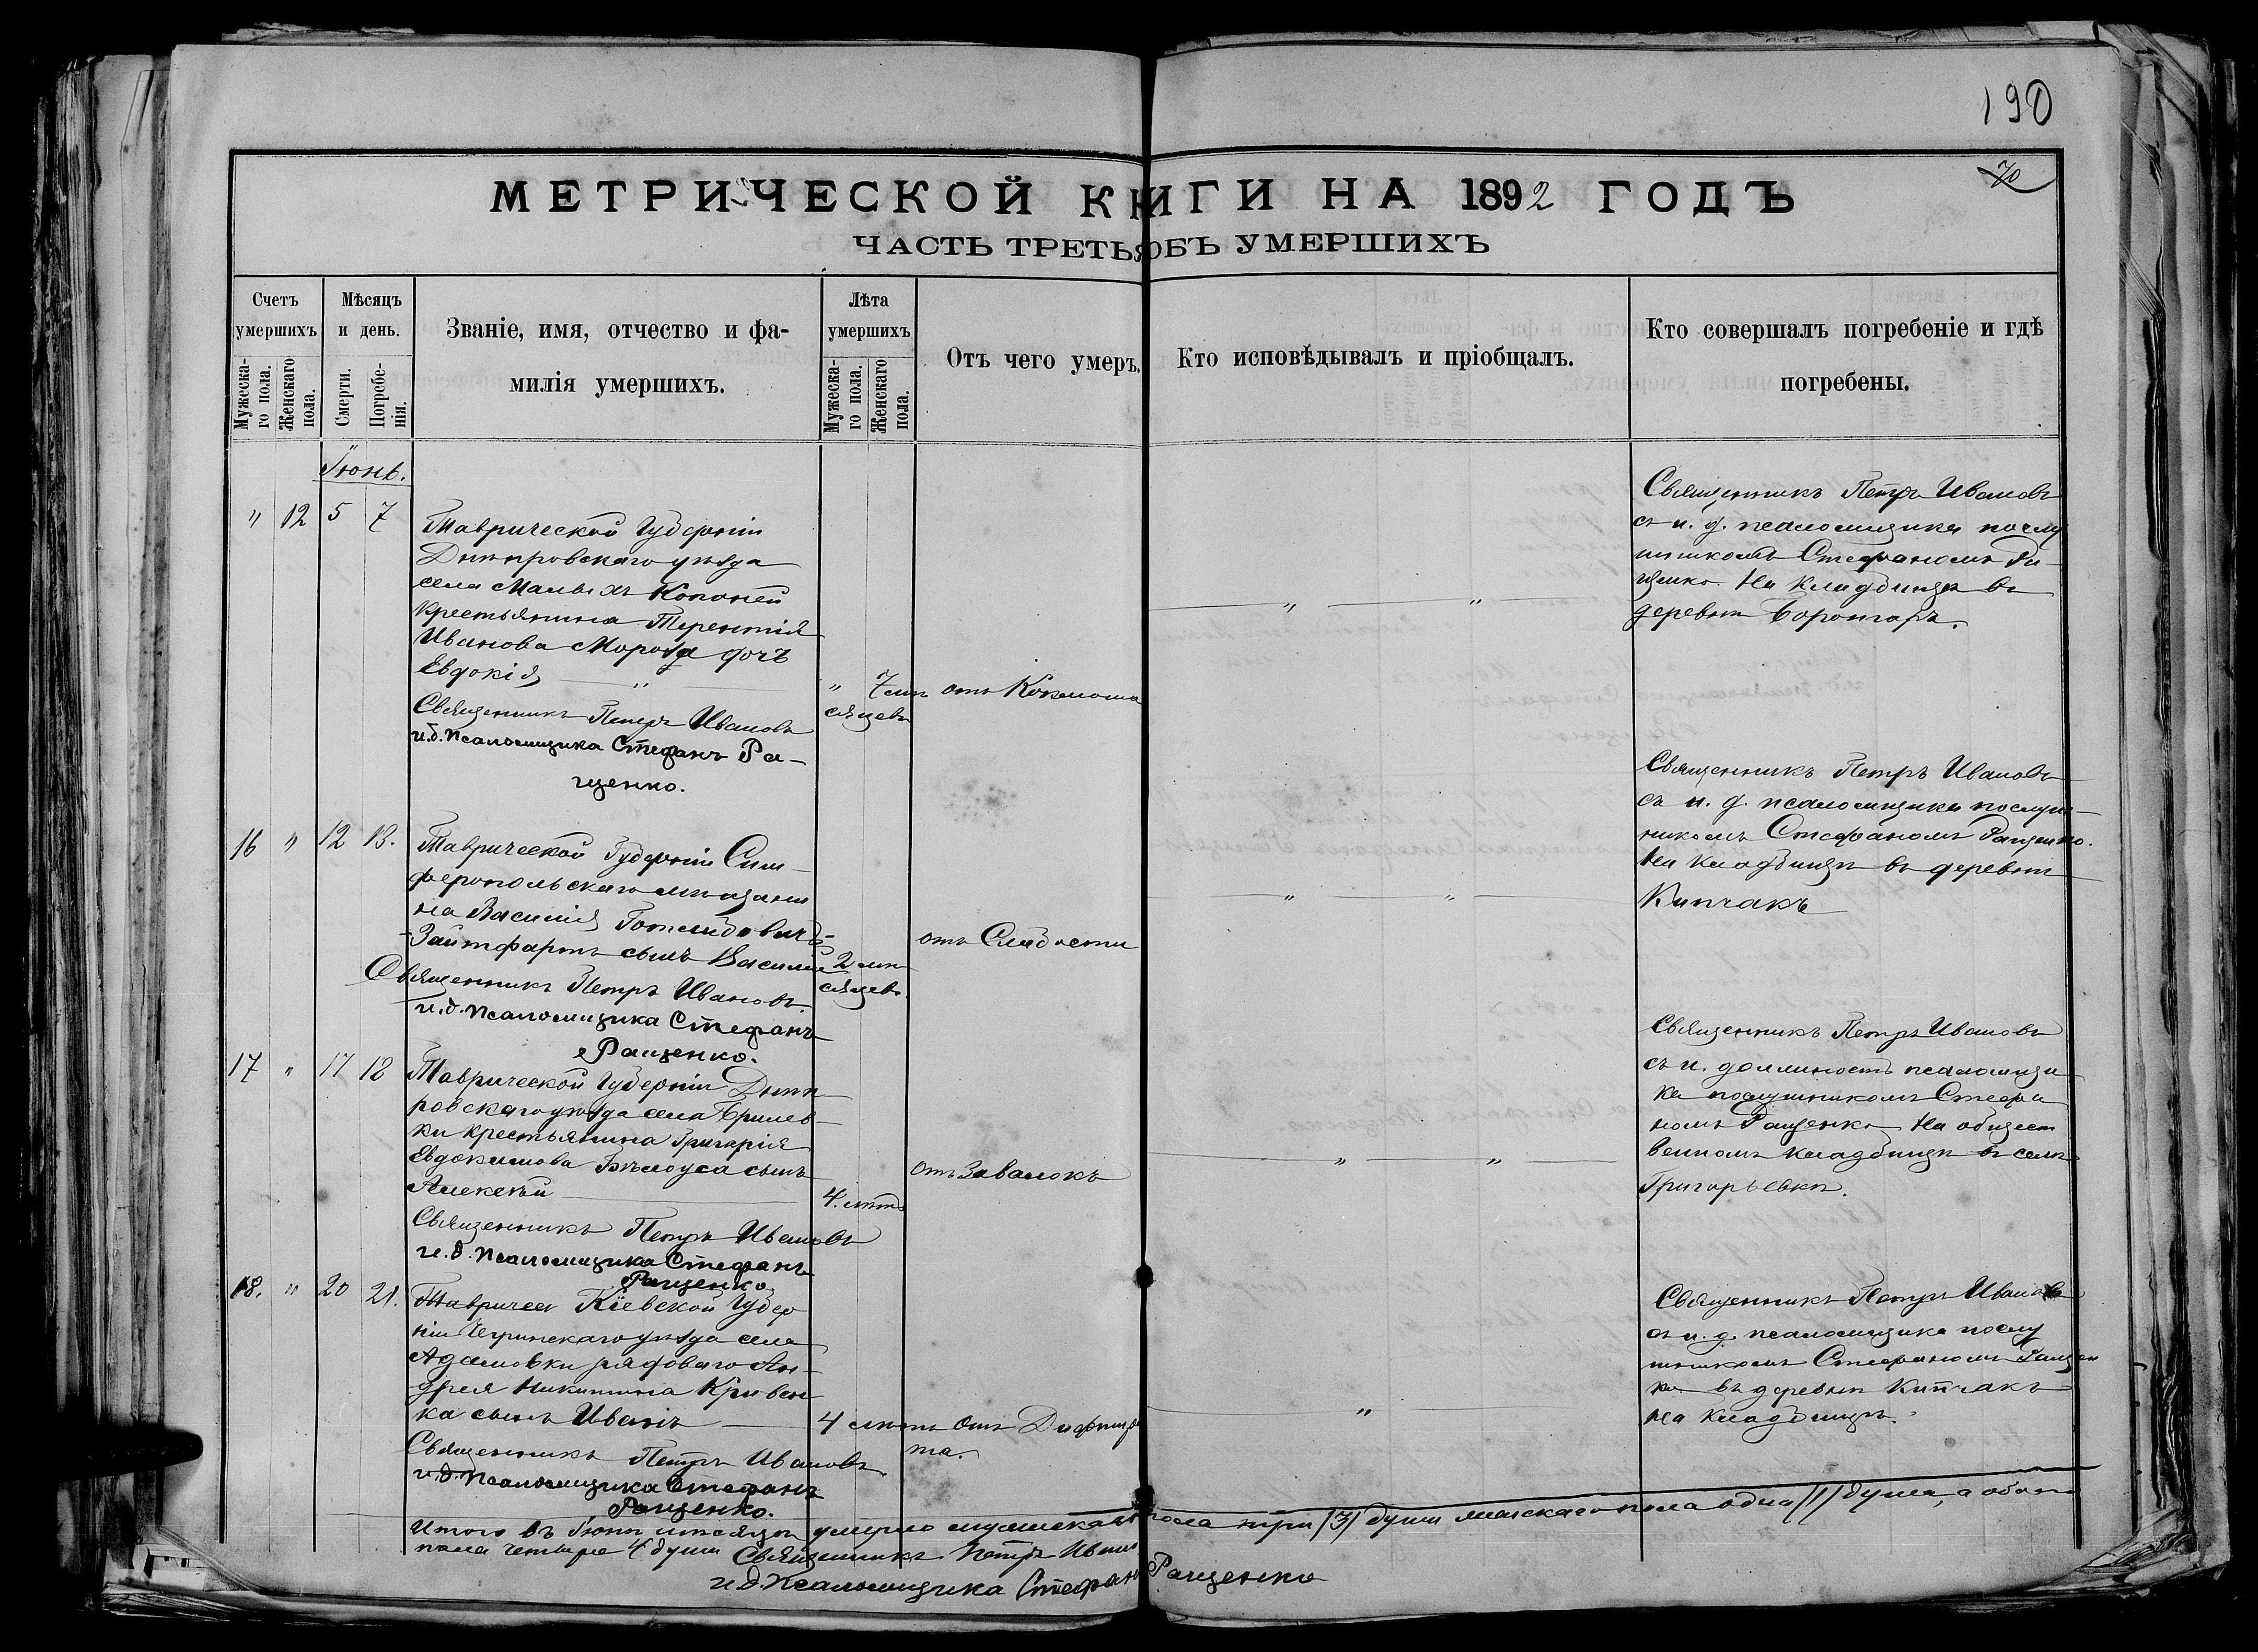 190
70
МЕТРИЧЕСКОЙ КНИГИ НА 1892 ГОДЪ
ЧАСТЬ ТРЕТЬЯ ОБЪ УМЕРШИХЪ
Счетъ умершихъ
Мужеска-го пола.
Женскаго пола.
Мѣсяцъ и день.
Смерти.
Погребе-нія.
Званіе, имя, отчество и фа-
милія умершихъ.
Лѣта умершихъ
Мужеска-го пола.
Женскаго пола.
Отъ чего умеръ.
Кто исповѣдывалъ и пріобщалъ.
Кто совершалъ погребеніе и гдѣ
погребены.
Іюнь.
" 12 5 7
Таврической Губерніи
Днѣпровскаго уѣзда
села Малыхъ Копаней
крестьянина Терентія
Иванова Мороза дочь
Евдокія "
" 7 мѣ
сяцевъ
отъ Коклюша
" "
Священникъ Петръ Ивановъ
и.д. псаломщика Стефанъ Ра-
щенко.
Священникъ Петръ Ивановъ
съ и. д. псаломщика послу
шникомъ Стефаномъ Ра-
щенко. На кладбищѣ въ
деревни Боронгаръ.
16 " 12 13.
Таврической Губерніи Сим-
феропольскаго мѣщани
на Василія
сынъ Василій
2 мѣ
сяцевъ.
отъ Слабости
" "
Священникъ Петръ Ивановъ
и.д. псаломщика Стефанъ
Ращенко.
Священникъ Петръ Ивановъ
съ и. д. псаломщика послуш-
никомъ Стефаномъ Ращенко.
На кладбищѣ въ деревни
Кипчакъ
17 " 17 18
Таврической Губерніи Днѣп
ровскаго уѣзда села Брилев-
ки крестьянина Григорія
Евдокимова Бѣлоуса сынъ
Алексѣй
4. лѣтъ
отъ Завалокъ
" "
Священникъ Петръ Ивановъ
и.д. псаломщика Стефанъ
Ращенко
Священникъ Петръ Ивановъ
съ и. должность псаломщи
ка послушникомъ Стефа
номъ Ращенко На общест
венномъ кладбищѣ въ селѣ
Григорьевкѣ.
18. " 20 21.
Тавричес Кіевской Губер
ніи Чегринскаго уѣзда села
Адамовки рядоваго Ан-
дрея Никитина Кривен
ка сынъ Иванъ
4 лѣтъ
отъ Дифтири
та.
"
Священникъ Петръ Ивановъ
и.д. псаломщика Стефанъ
Ращенко.
Священникъ Петръ Ивановъ
съ и. д. псаломщика послу
шникомъ Стефаномъ Ращен
ко въ деревни Кипчакъ
на кладбищѣ.
Итого въ Іюнѣ мѣсяцѣ умерло мужескаго пола три /3/ души женскаго пола одна /1/ душа, а обоего
пола четыре 4 души Священникъ Петръ Ивановъ
и.д. псаломщика Стефанъ Ращенко